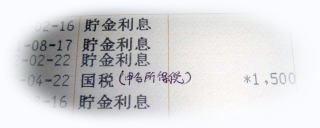 02-16 貯金利息
-08-17 貯金利息
-02-22 貯金利息
-04-22 国税(申告所得税) *1,500
8-16 貯金利息